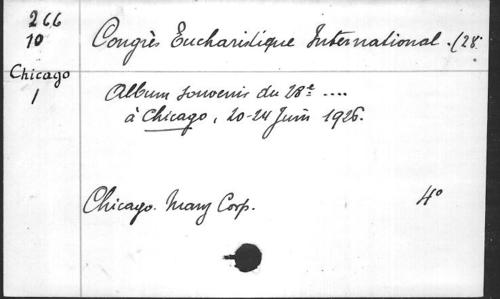 266
10
Chicago
1
Congrès Eucharistique International. (28
Album souvenir du 28e ....
à Chicago, 20-24 Juin 1926.
Chicago. Mary Corp.
4°